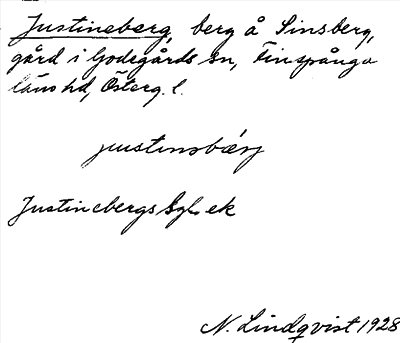 Justineberg, berg å Sinsberg,
gård i Godegårds sn, Finspånga
läns hd, Österg. l.
jusstinsbærj
Justinebergs Egl. ek
N. Lindqvist 1928